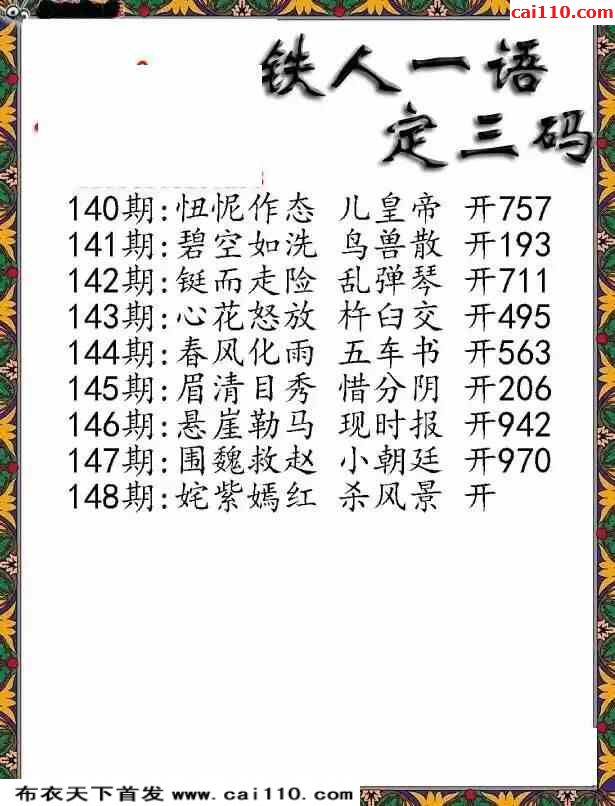 cai110.com
铁人一语
定三码
140期:忸怩作态 儿皇帝 开757
141期:碧空如洗 鸟兽散 开193
142期:铤而走险 乱弹琴 开711
143期:心花怒放 杵臼交 开495
144期:春风化雨 五车书 开563
145期:眉清目秀 惜分阴 开206
146期:悬崖勒马 现时报 开942
147期:围魏救赵 小朝廷 开970
148期:姹紫嫣红 杀风景 开
布衣天下首发 www.cai110.com